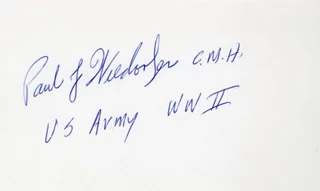 Paul J Wiedorfer C.M.H.
US Army WW II